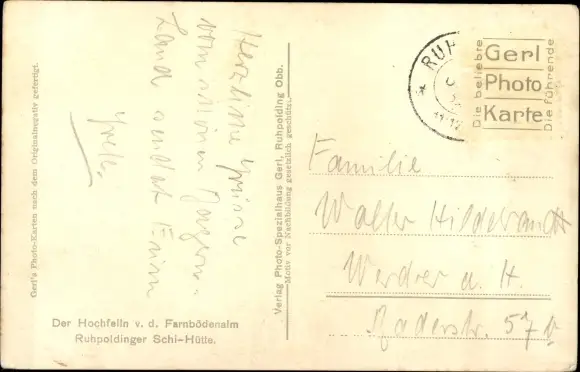 Gerl's Photo-Karten nach dem Originalnegativ gefertigt.
Herzliche Grüsse
vom schönen Bayern-
Land sendet Euch
Der Hochfelln v. d. Farnbödenalm
Ruhpoldinger Schi-Hütte.
Verlag Photo-Spezialhaus Gerl, Ruhpolding Obb.
Motiv vor Nachbildung gesetzlich geschützt.
RUH
Die beliebte
Gerl
Photo
Karte
Die führende
Familie
Walter Hildebrandt
Werder a. H.
57 b